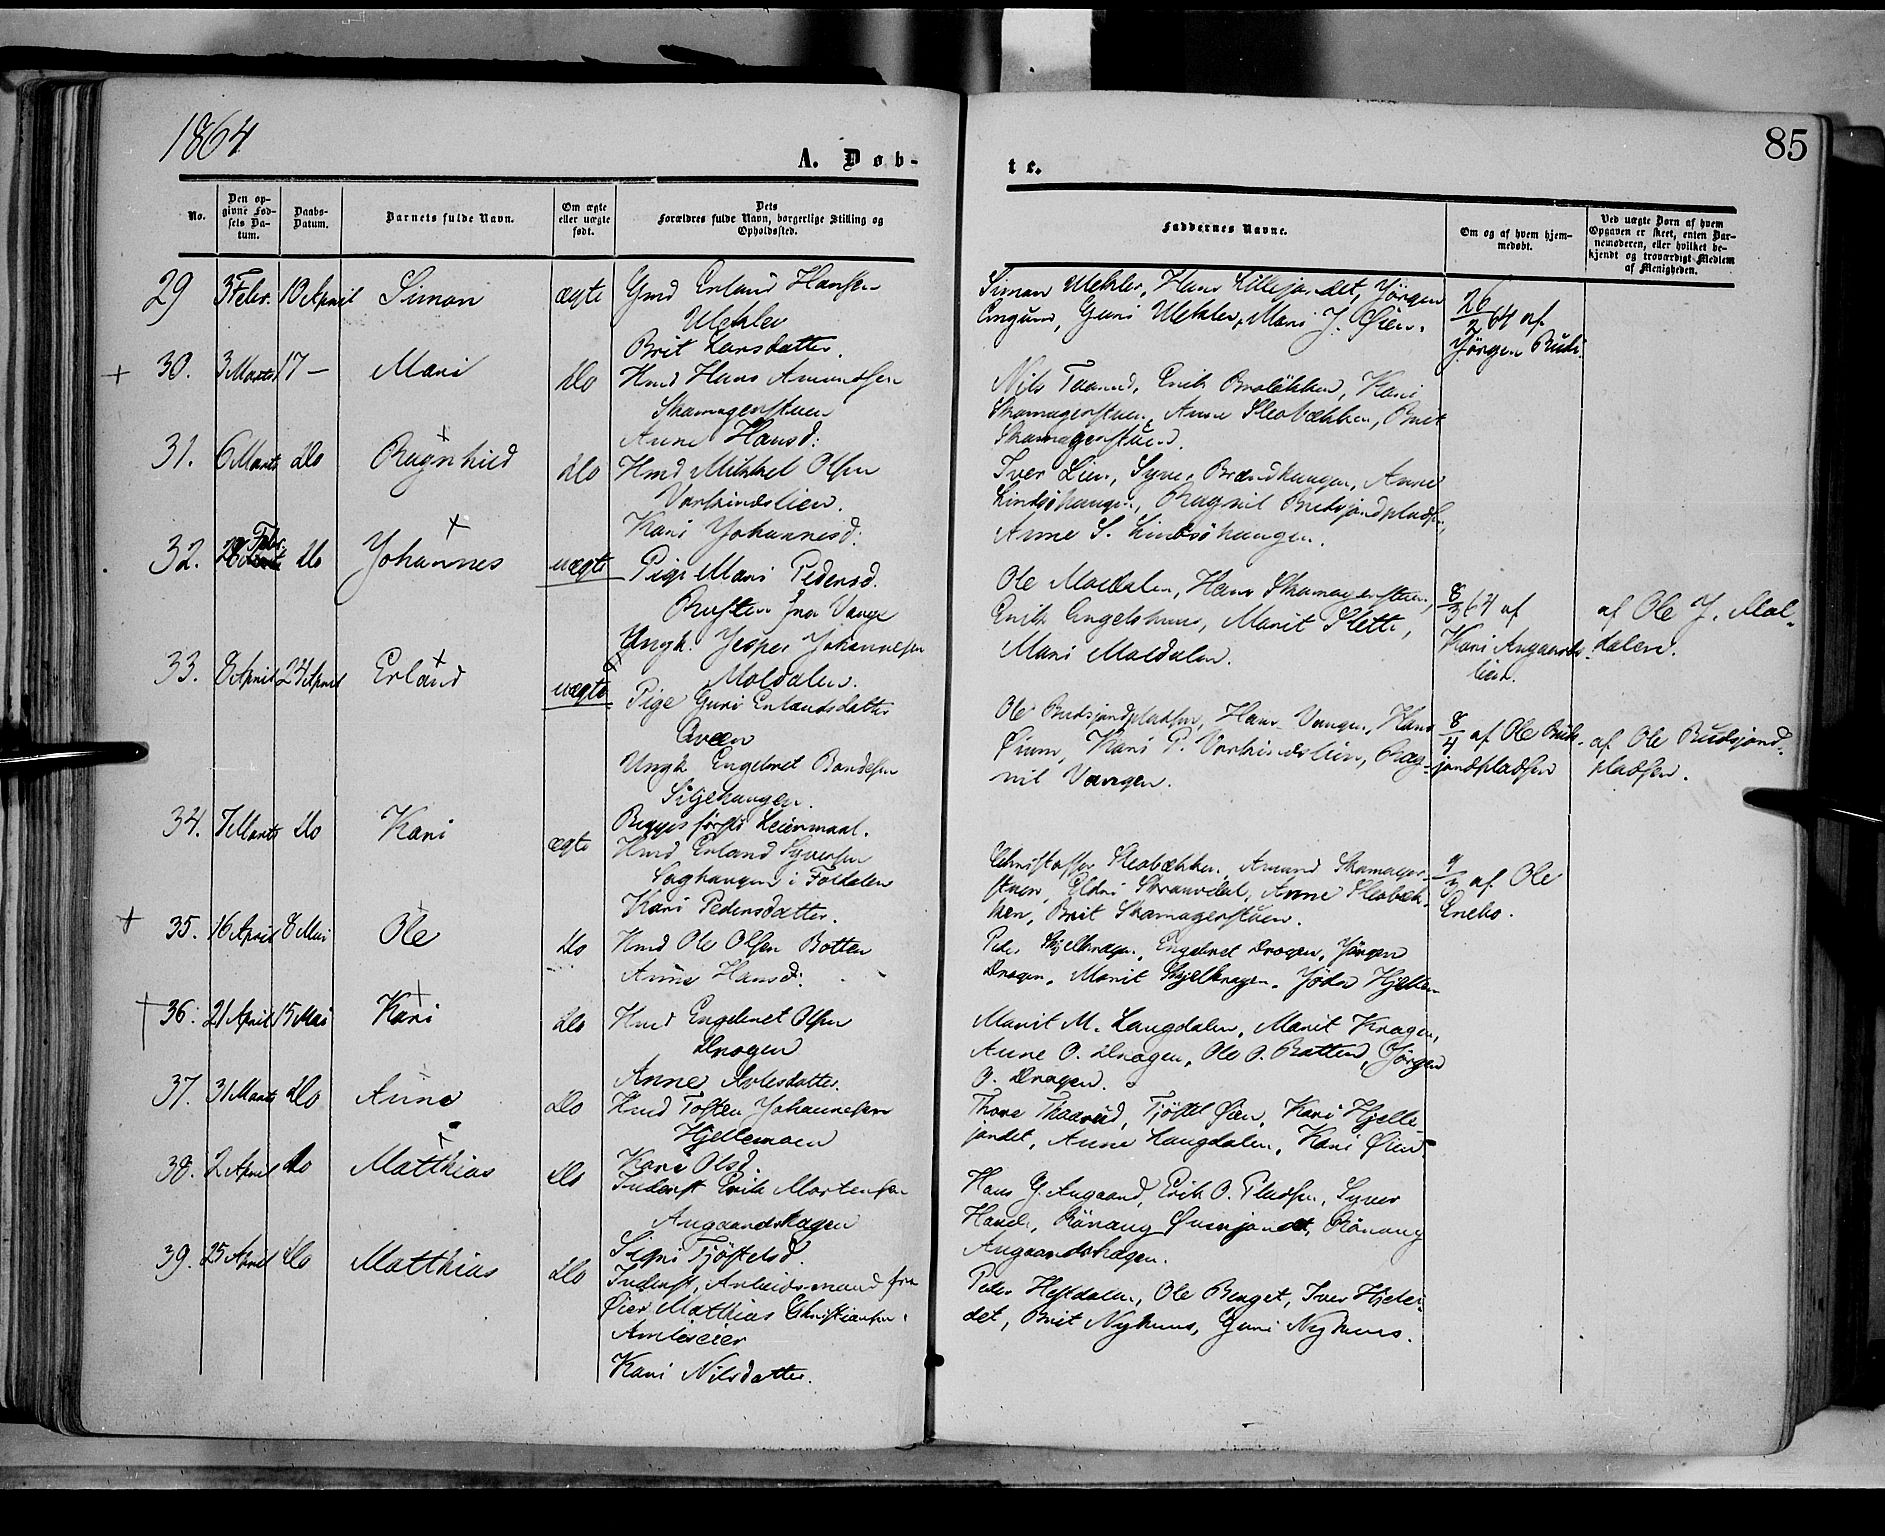 1864
A. Døb-
te.
85
No.
Den op-
givne Fød-
sels Da-
tum.
Daabs-
Datum.
Barnets fulde Navn.
Om ægte
eller uægte
født.
Dets
Forældres fulde Navn, borgerlige Stilling og
Opholdssted.
Faddernes Navne.
Om og af hvem hjem-
medøbt.
Ved uægte Børn af hvem
Opgaven er skeet, enten Bar-
nemoderen, eller hvilket be-
kjendt og troværdigt Medlem
af Menigheden.
29 3 Febr. 10 April Simon ægte Gmd Erland Hansen
Brit Larsdatter.
Simon Hans Lillejordet, Jörgen
Guri Mari J. Öien.
26/2 64 af
Jörgen
30. 3 Marts 17 – Mari do Hmd Hans Amundsen
Skamagerstuen
Anne Hansd:
Nils Taarud, Erik Braløkken, Kari
Skamagerstuen, Anne Slaabækken, Brit
Skamagerstuen.
31. 6 Marts do Ragnhild do Hmd Mikkel Olsen
Vorkindslien.
Kari Johannesd:
Iver Lien, Syver Brændhaugen, Anne
Lindsöhaugen, Ragnil Budsjordpladsen,
Anne S. Lindsöhaugen.
32. 28 Febr. do Johannes uægte Pige Mari Pedersd.
Rusten fra Vaage
Ungk. Jesper Johannesen
Moldalen.
Ole Moldalen, Hans Skamagerstuen,
Erik Engelshuus, Marit Slette,
Mari Moldalen.
8/3 64 af
Kari Angaards-
lien.
af Ole J. Mol-
dalen.
33. 8 April 24 April Erland uægte Pige Guri Erlandsdatter
Ungk Engebret Bondesen
Siljehaugen.
Begges første Leiermaal.
Ole Budsjordpladsen, Hans Vangen, Hans
Öien, Kari P. Vorkindslien, Rag-
nil Vangen.
8/4 af Ole Buds-
jordpladsen
af Ole Budsjord-
pladsen.
34. 7 Marts do Kari ægte Hmd Erland Syversen
Saghaugen i Foldalen
Kari Pedersdatter.
Christoffer Slaabækken, Amund Skamager-
stuen, Eldri Skrauvdal, Anne Slaabæk-
ken, Brit Skamagerstuen.
9/3 af Ole
Enebo.
35. 16 April 8 Mai Ole do Hmd Ole Olsen Botten
Anne Hansd:
Peder Skjelkragen, Engebret Kragen, Jörgen
Kragen, Marit Skjelkragen,
36. 21 April 15 Mai Kari do Hmd Engebret Olsen
Kragen
Anne Avlesdatter.
Marit M. Laugdalen, Marit Kragen,
Anne O. Kragen, Ole O. Botten, Jörgen
O. Kragen.
37. 31 Marts do Anne do Hmd Tosten Johannesen
Hjellemoen
Kari Olsd.
Thore Tjöstel Öien, Kari Hjelle-
jordet, Anne Laugdalen, Kari Öien.
38. 2 April do Matthias do Inderst Erik Mortensen
Angaardshagen
Signi Tjöstelsd.
Hans G. Angaard, Erik O. Pladsen, Syver
Rönaug Rönaug
Angaardshagen.
39. 25 April do Matthias do Inderst, Arbeidsmand fra
Öier Matthias Christiansen
Kari Nilsdatter.
Peder Ole Berget, Iver
Brit Nyhuus, Guri Nyhuus.